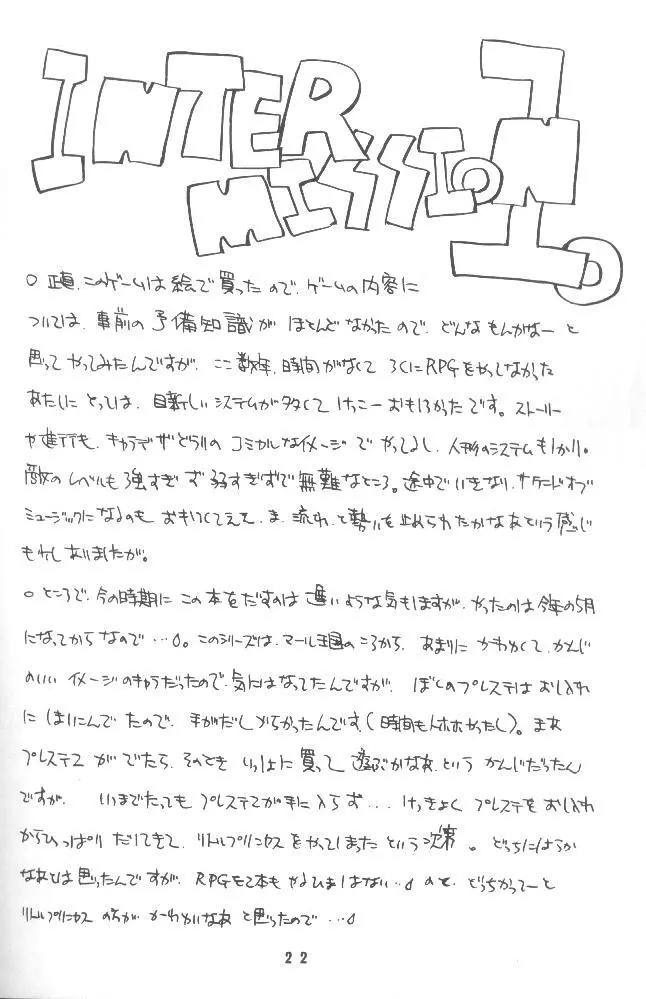 INTER
MISSION
○正直、このゲームは絵で買ったので、ゲームの内容に
ついては、事前の予備知識がほとんどなかったので、どんなもんかなーと
思ってやってみたんですが、ここ数年、時間がなくてろくにRPGをやってなかった
あたしにとっては、目新しいシステムが多くてけっこーおもしろかったです。ストーリー
や進行も、キャラデザどうりのコミカルなイメージでやってよし、人形のシステムも
敵のレベルも強すぎず弱すぎずで無難なところ。途中でいきなり、オブ
ミュージックになるのも ま、流れと勢いを止められたかなあという感じ
もしましたが。
○ところで、今の時期にこの本をだすのは遅いような気もしますが、やったのは今年の5月
になってからなので…。このシリーズは、マール王国のころから、あまりにかわいくて、かんじ
のいいイメージのキャラだったので、気にはなってたんですが、ぼくのプレステはおしいれ
にはいってたので、手がだしづらかったんです(時間もなかったし)。まあ
プレステ2がでたら、そのときいっしょに買って遊ぶかなあ、というかんじだったん
ですが、いつまでたってもプレステ2が手に入らず…けっきょくプレステをおしいれ
からひっぱりだしてきて、リトルプリンセスをやってしまったという次第。どっちにしようか
なあとは思ったんですが、RPGを2本もやるひまはない…ので、どっちかってーと
リトルプリンセスのほうがかーわいいなあと思ったので…
22